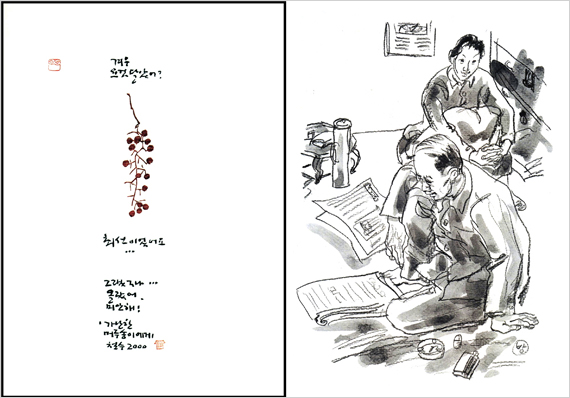 겨우
요것 달았어?
최선이었어요
...
그랬구나...
몰랐어.
미안해!
· 가난한
머루송이에게
철수 2000